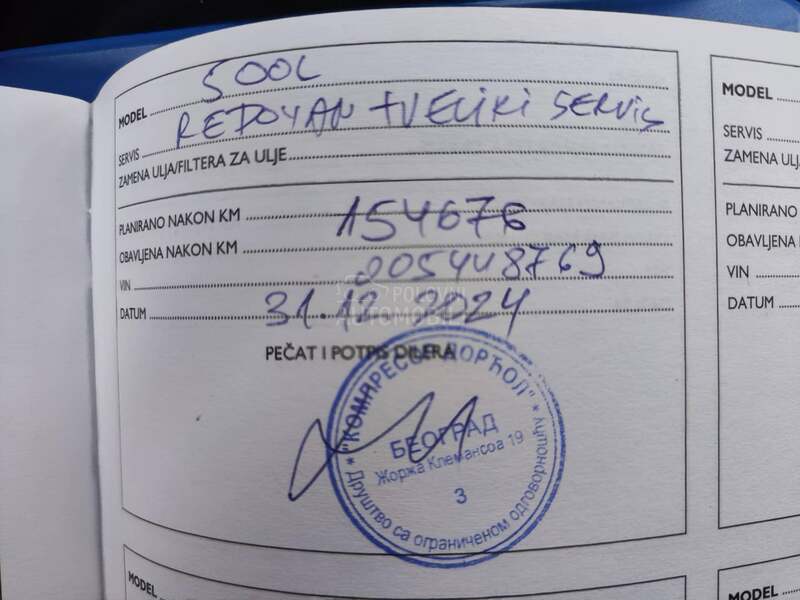 MODEL 500L
SERVIS REDOVAN + VELIKI SERVIS
ZAMENA ULJA/FILTERA ZA ULJE
PLANIRANO NAKON KM
OBAVLJENA NAKON KM 154676
VIN J005448769
DATUM 31.12.2024
PEČAT I POTPIS DILERA
"КОМПРЕСОР ДОРЋОЛ"
БЕОГРАД
Жоржа Клемансоа 19
3
Друштво са ограниченом одговорношћу
POLOVNI
AUTOMOBILI
MODEL
SERVIS
ZAMENA ULJ
PLANIRANO
OBAVLJENA
VIN
DATUM
MODEL
MODEL